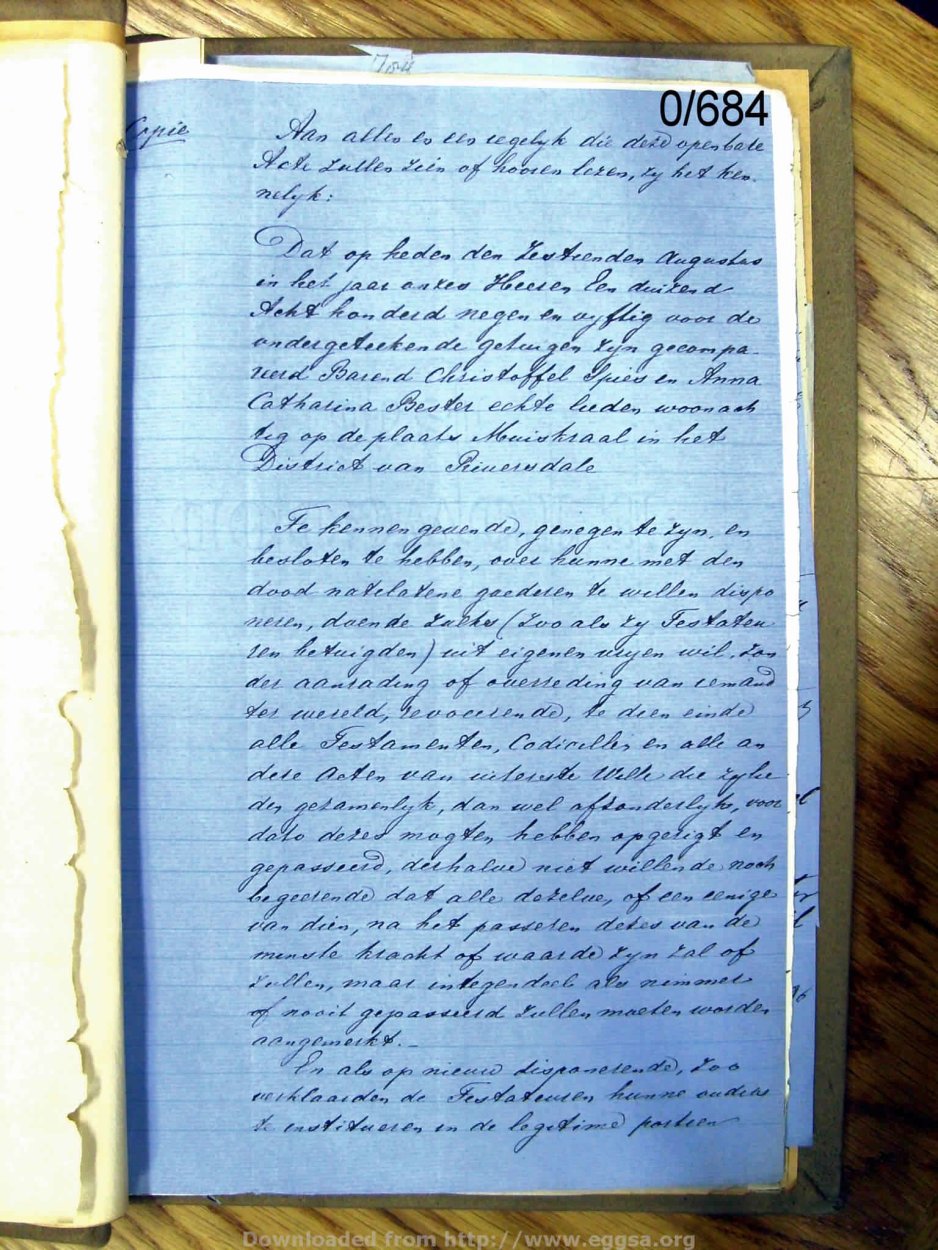 704
0/684
Copie
Aan allen en een iegelyk die deze openbare
Acte zullen zien of hooren lezen, zy het ken-
nelyk:
Dat op heden den Zestienden Augustus
in het jaar onzes Heeren Een duizend
Acht honderd negen en vyftig voor de
ondergeteekende getuigen zyn gecompa-
reerd Barend Christoffel Spies en Anna
Catharina Bester echte lieden woonach
tig op de plaats Muiskraal in het
District van Riversdale
Te kennen gevende, genegen te zyn, en
besloten te hebben, over hunne met den
dood natelatene goederen te willen dispo
neren, doende zulks (zoo als zy Testateu
ren betuigden) uit eigenen vryen wil, zon
der aanrading of overreding van iemand
ter wereld, revocerende, te dien einde
alle Testamenten, Codicillen en alle an
dere acten van uiterste Wille die zylie
den gezamenlyk, dan wel afzonderlyk, voor
dato dezes mogten hebben opgerigt en
gepasseerd, deshalve niet willende noch
begeerende dat alle dezelve, of een eenige
van dien, na het passeren dezes van de
minste kracht of waarde zyn zal of
zullen, maar integendeel als nimmer
of nooit gepasseerd zullen moeten worden
aangemerkt.-
En als op nieuw disponerende, zoo
verklaarden de Testateuren hunne ouders
te institueren in de legitime portien
Downloaded from http://www.eggsa.org